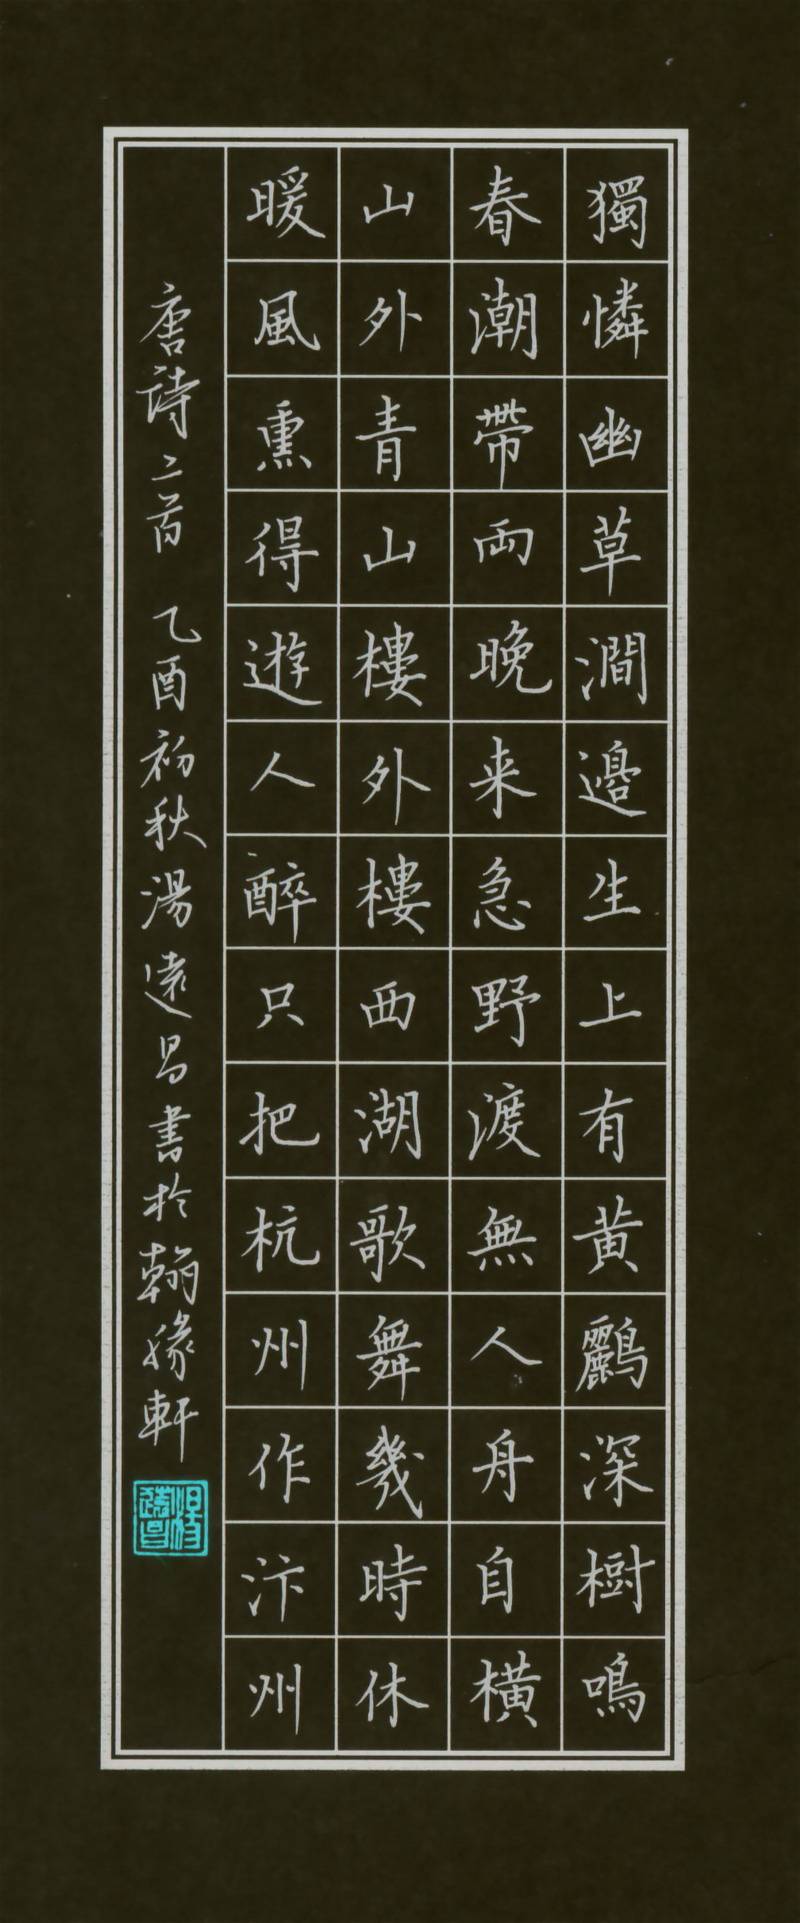 獨憐幽草澗邊生上有黃鸝深樹鳴
春潮帶雨晚来急野渡無人舟自橫
山外青山樓外樓西湖歌舞幾時休
暖風熏得遊人醉只把杭州作汴州
唐詩二首 乙酉初秋湯遠昌書於翰緣軒